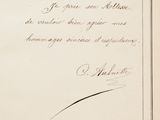 Je prie son Altesse
de vouloir bien agréer mes
hommages sincères et respectueux